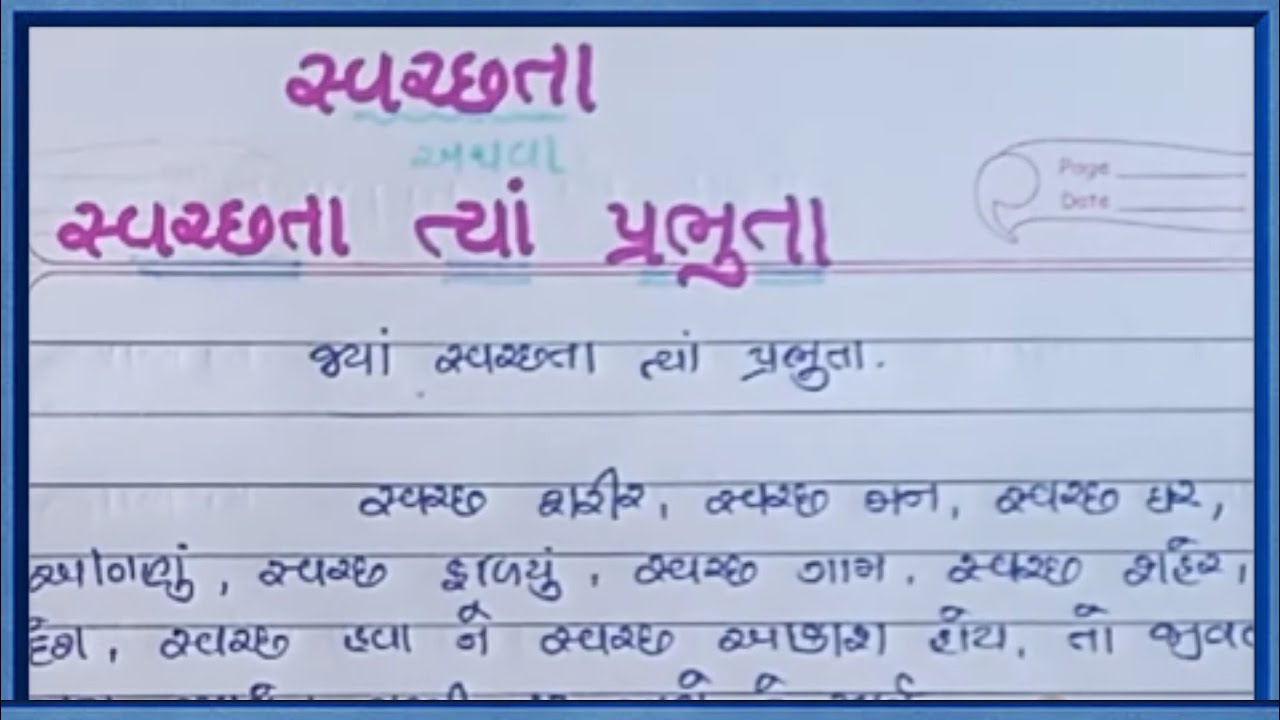 સ્વચ્છતા
અથવા
સ્વચ્છતા ત્યાં પ્રભુતા
Page
Date
જ્યાં સ્વચ્છતા ત્યાં પ્રભુતા.
સ્વચ્છ શરીર, સ્વચ્છ મન, સ્વચ્છ ઘર,
આંગણું, સ્વચ્છ ફળિયું, સ્વચ્છ ગામ, સ્વચ્છ શહેર,
દેશ, સ્વચ્છ હવા ને સ્વચ્છ આકાશ હોય, તો